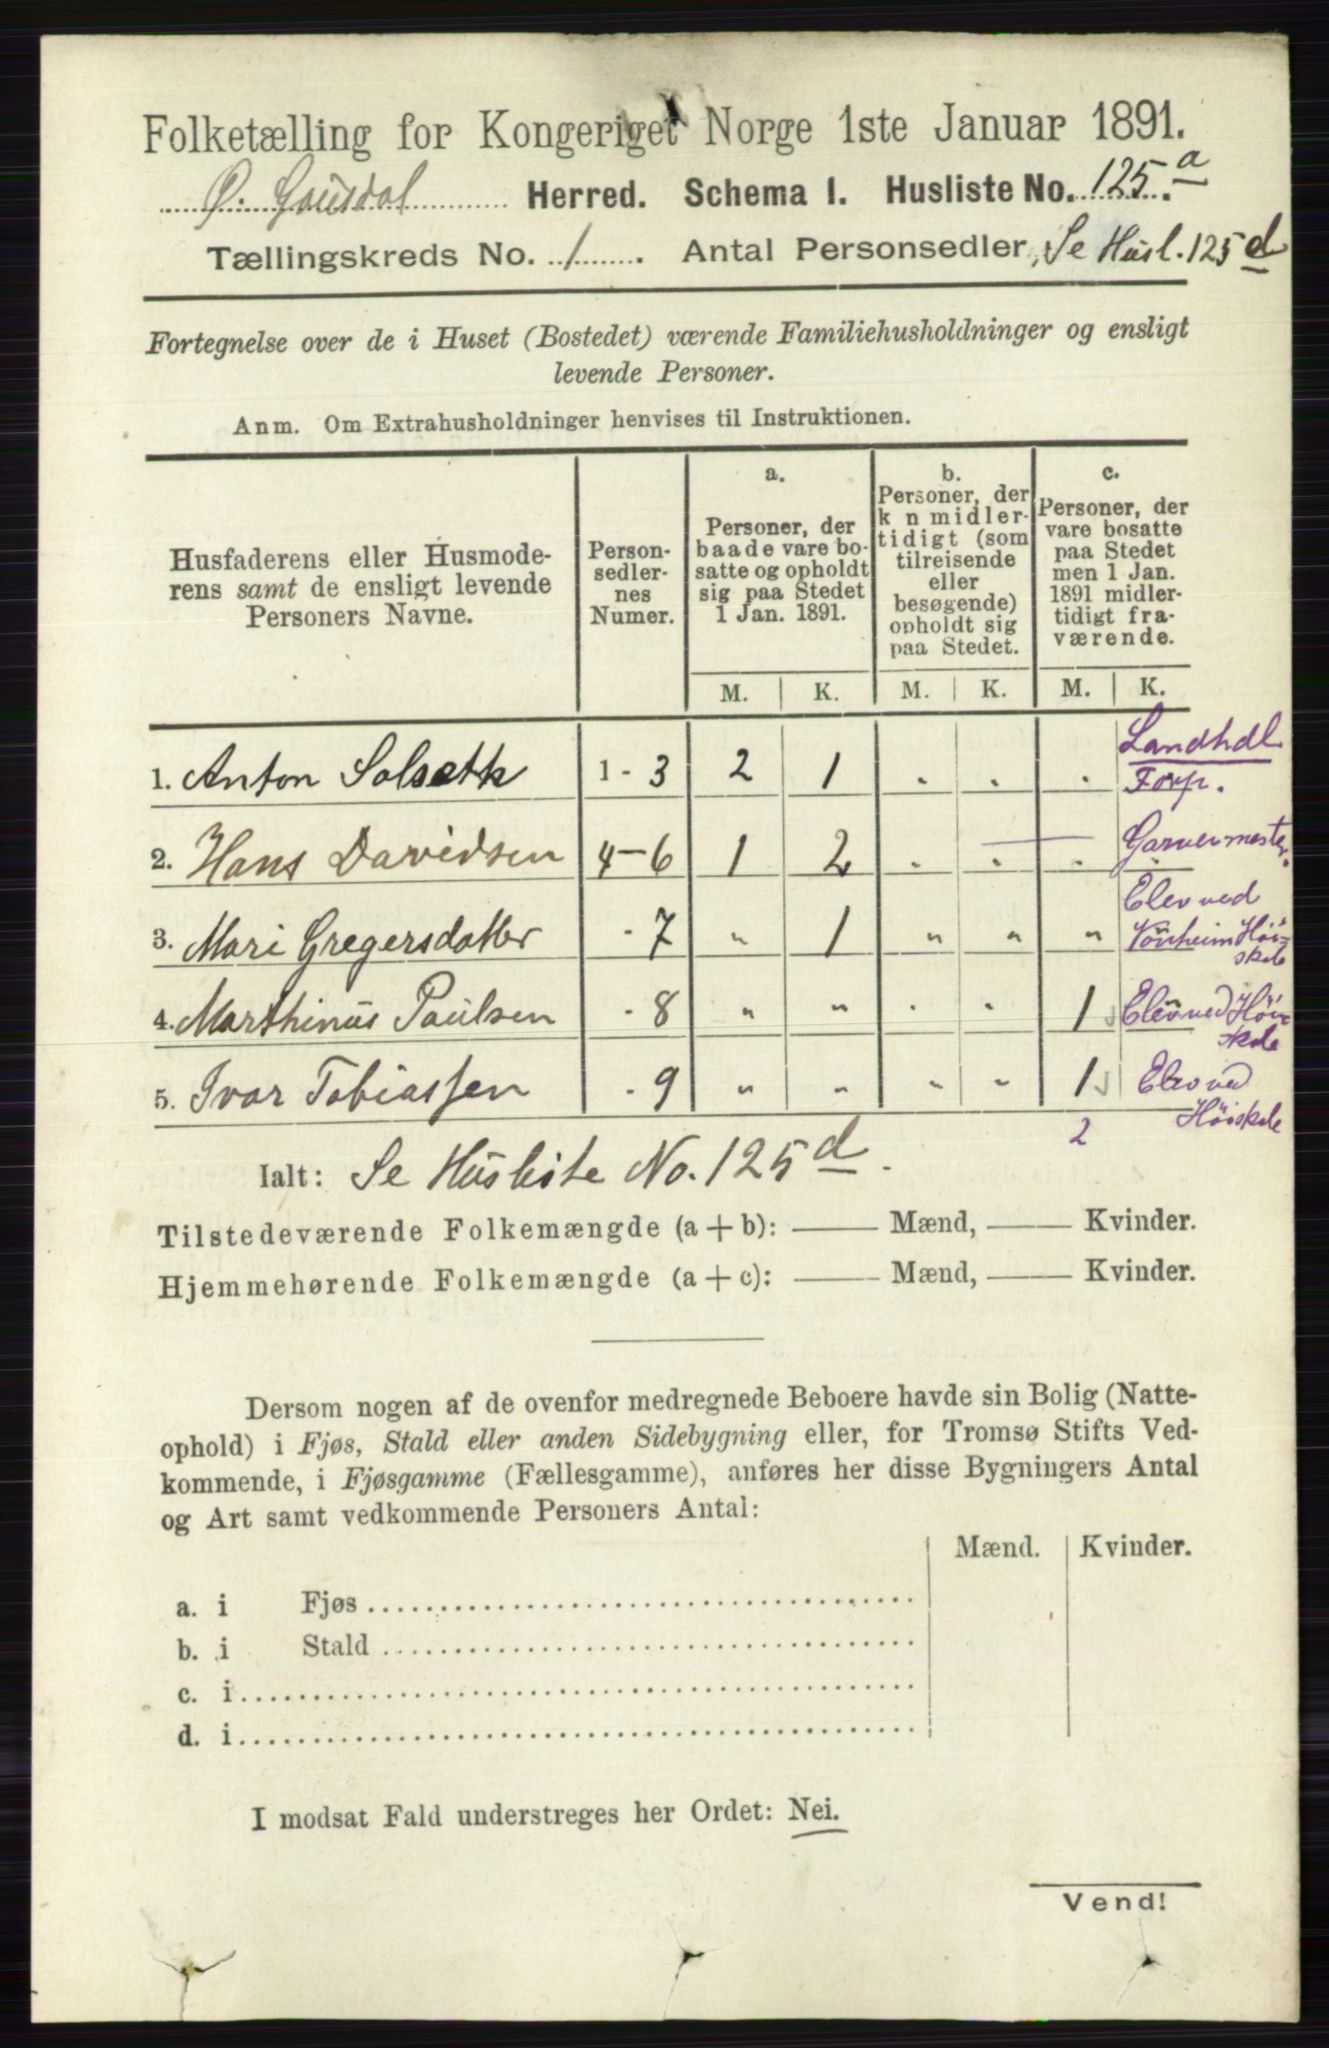 Folketælling for Kongeriget Norge 1ste Januar 1891.
Ø. Gausdal Herred. Schema 1. Husliste No. 125 a.
Tællingskreds No. 1. Antal Personsedler, Se Husl. 125 d
Fortegnelse over de i Huset (Bostedet) værende Familiehusholdninger og ensligt
levende Personer.
Anm. Om Extrahusholdninger henvises til Instruktionen.
Husfaderens eller Husmode-
rens samt de ensligt levende
Personers Navne.
Person-
sedler-
nes
Numer.
a.
Personer, der
baade vare bo-
satte og opholdt
sig paa Stedet
1 Jan. 1891.
b.
Personer, der
k n midler-
tidigt (som
tilreisende
eller
besøgende)
opholdt sig
paa Stedet.
c.
Personer, der
vare bosatte
paa Stedet
men 1 Jan.
1891 midler-
tidigt fra-
værende.
M. K. M. K. M. K.
1. Anton Solseth 1 - 3 2 1 . . . Landhdl.
Forp.
2. Hans Davidsen 4-6 1 2 . . . Garvermester.
3. Mari Gregersdatter - 7 " 1 " " " Elev ved
Vonheim Höi-
skole
4. Marthinus Paulsen - 8 " " . . 1 Elev ved Höi-
skole
5. Ivar Tobiassen - 9 " " " " 1 Elev ved
Höiskole
2
Ialt: Se Husliste No. 125 d.
Tilstedeværende Folkemængde (a + b): — Mænd, — Kvinder.
Hjemmehørende Folkemængde (a + c): — Mænd, — Kvinder.
Dersom nogen af de ovenfor medregnede Beboere havde sin Bolig (Natte-
ophold) i Fjøs, Stald eller anden Sidebygning eller, for Tromsø Stifts Ved-
kommende, i Fjøsgamme (Fællesgamme), anføres her disse Bygningers Antal
og Art samt vedkommende Personers Antal:
Mænd. Kvinder.
a. i Fjøs
b. i Stald
c. i
d. i
I modsat Fald understreges her Ordet: Nei.
Vend!